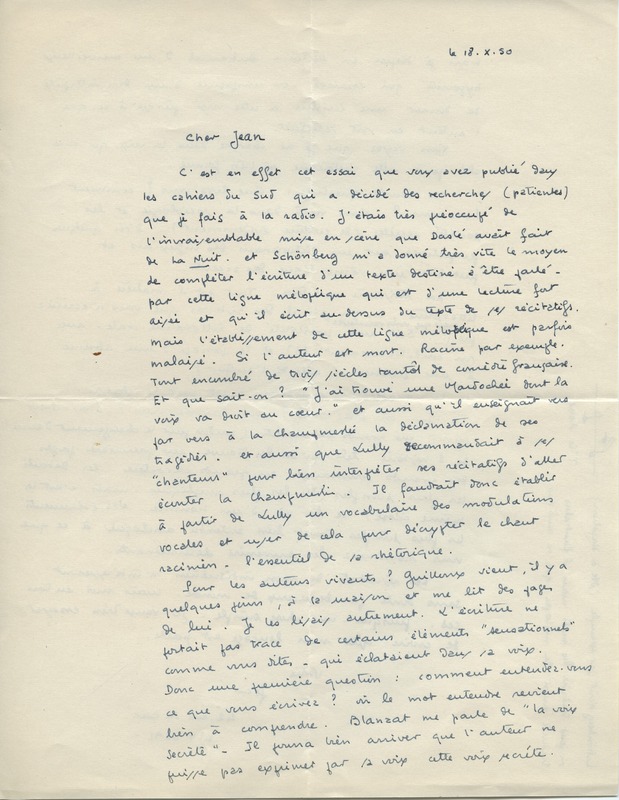 le 18. X. 50
Cher Jean
C'est en effet cet essai que vous avez publié dans
les cahiers du Sud qui a décidé des recherches (patientes)
que je fais à la radio. J'étais très préoccupé de
l'invraisemblable mise en scène que Dasté avait fait
de La Nuit. et Schönberg m'a donné très vite le moyen
de compléter l'écriture d'un texte destiné à être parlé -
par cette ligne mélopéique qui est d'une lecture fort
aisée et qu'il écrit au-dessus du texte de ses récitatifs.
mais l'établissement de cette ligne mélopéique est parfois
malaisé. Si l'auteur est mort. Racine par exemple.
Tout encombré de trois siècles tantôt de comédie française.
Et que sait-on ? "J'ai trouvé une Mardochée dont la
voix va droit au coeur." et aussi qu'il enseignait vers
par vers à la Champmeslé la déclamation de ses
tragédies. et aussi que Lully recommandait à ses
"chanteurs" pour bien interpréter ses récitatifs d'aller
écouter la Champmeslé. Il faudrait donc établir
à partir de Lully un vocabulaire des modulations
vocales et user de cela pour décrypter le chant
racinien - l'essentiel de sa rhétorique.
Pour les auteurs vivants ? Guilloux vient, il y a
quelques jours, à la maison et me lit des pages
de lui. Je les lisais autrement. L'écriture ne
portait pas trace de certains éléments "sensationnels"
comme vous dites - qui éclataient dans sa voix.
Donc une première question : comment entendez-vous
ce que vous écrivez ? où le mot entendre revient
bien à comprendre. Blanzat me parle de "la voix
secrète" - Il pourra bien arriver que l'auteur ne
puisse pas exprimer par sa voix cette voix secrète.